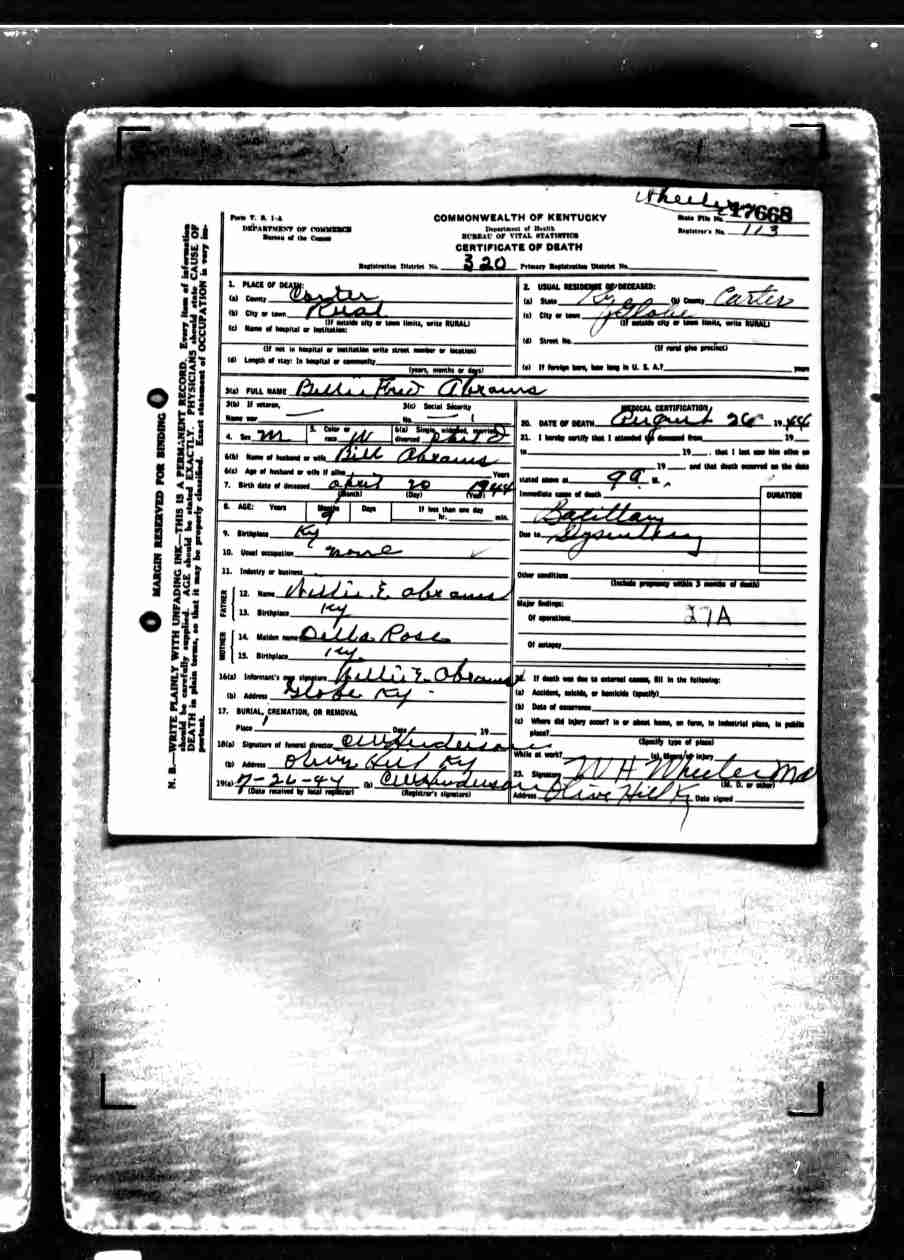 Wheeler
Form V. S. 1-A
DEPARTMENT OF COMMERCE
Bureau of the Census
COMMONWEALTH OF KENTUCKY
Department of Health
BUREAU OF VITAL STATISTICS
CERTIFICATE OF DEATH
State File No. 17668
Registrar's No. 113
Registration District No. 320 Primary Registration District No.
MARGIN RESERVED FOR BINDING
N. B.—WRITE PLAINLY WITH UNFADING INK—THIS IS A PERMANENT RECORD. Every item of information
should be carefully supplied. AGE should be stated EXACTLY. PHYSICIANS should state CAUSE OF
DEATH in plain terms, so that it may be properly classified. Exact statement of OCCUPATION is very im-
portant.
1. PLACE OF DEATH:
(a) County Carter
(b) City or town Rural
(If outside city or town limits, write RURAL)
(c) Name of hospital or institution:
(If not in hospital or institution write street number or location)
(d) Length of stay: In hospital or community
(years, months or days)
2. USUAL RESIDENCE OF DECEASED:
(a) State Ky (b) County Carter
(c) City or town Globe
(If outside city or town limits, write RURAL)
(d) Street No.
(If rural give precinct)
(e) If foreign born, how long in U. S. A.? years
3(a) FULL NAME Billie Fred Abrams
3(b) If veteran,
Name war
3(c) Social Security
No.
4. Sex M
5. Color or
race W
6(a) Single, widowed, married,
divorced
6(b) Name of husband or wife Bill Abrams
6(c) Age of husband or wife if alive Years
7. Birth date of deceased April 20 1944
(Month) (Day) (Year)
8. AGE: Years Months Days If less than one day
hr. min.
9. Birthplace Ky
10. Usual occupation none
11. Industry or business
FATHER
12. Name Willie E. Abrams
13. Birthplace Ky
MOTHER
14. Maiden name Della Rose
15. Birthplace Ky
16(a) Informant's own signature Willie E. Abrams
(b) Address Globe Ky.
17. BURIAL, CREMATION, OR REMOVAL
Place Date 19
18(a) Signature of funeral director CW Henderson
(b) Address Olive Hill Ky
19(a) 7-26-44 (b) CW Henderson
(Date received by local registrar) (Registrar's signature)
MEDICAL CERTIFICATION
20. DATE OF DEATH August 26 1944
21. I hereby certify that I attended the deceased from 19
to 19 , that I last saw him alive on
19 and that death occurred on the date
stated above at M.
Immediate cause of death
DURATION
Bacillary
Due to Dysentery
Other conditions
(Include pregnancy within 3 months of death)
Major findings:
Of operations 27A
Of autopsy
22. If death was due to external causes, fill in the following:
(a) Accident, suicide, or homicide (specify)
(b) Date of occurrence
(c) Where did injury occur? In or about home, on farm, in industrial place, in public
place?
(Specify type of place)
While at work? (e) Means of injury
23. Signature W H Wheeler MD
(M. D. or other)
Address Olive Hill Ky Date signed